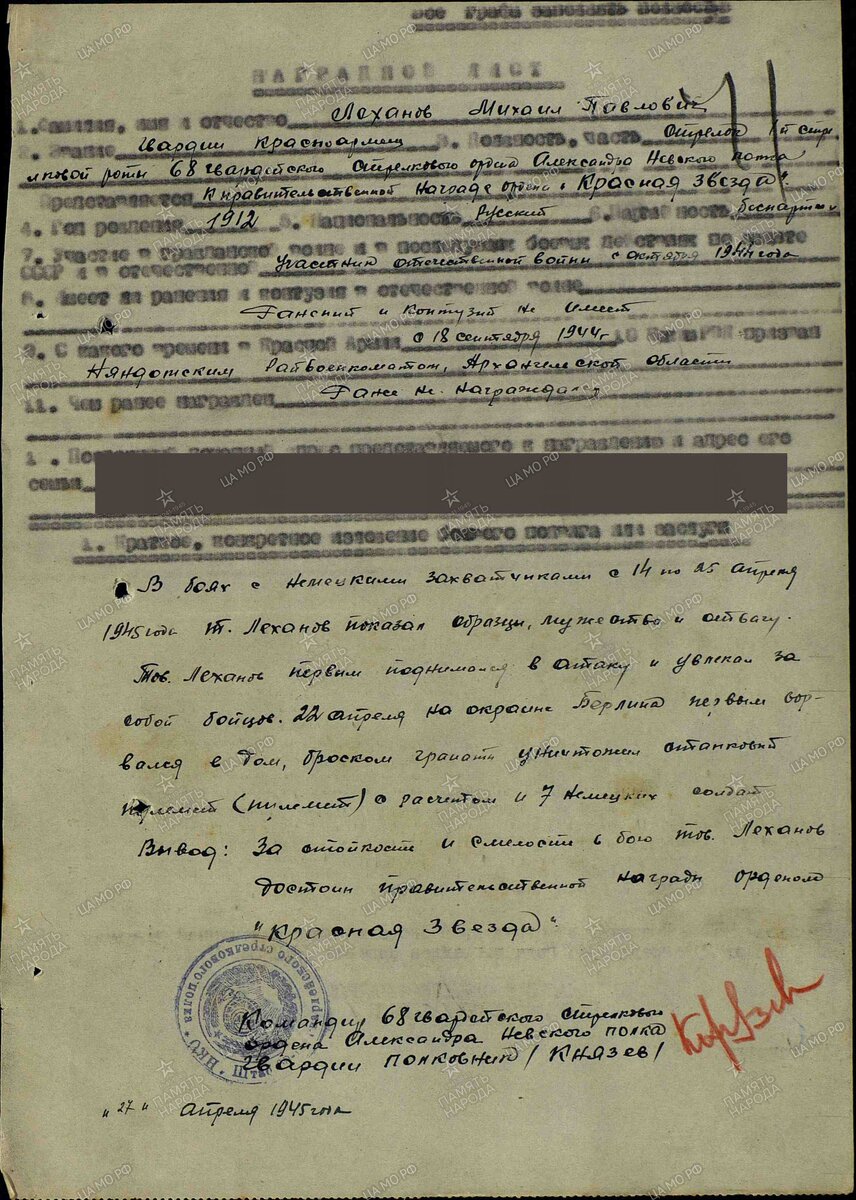 Все графы заполнять полностью
НАГРАДНОЙ ЛИСТ
1. Фамилия, имя и отчество Леханов Михаил Павлович
2. Звание Гвардии красноармеец 3. Должность, часть Стрелок 1й стре-
лковой роты 68 гвардейского стрелкового ордена Александра Невского полка
Представляется К правительственной награде ордену "Красная Звезда".
4. Год рождения 1912 5. Национальность Русский 6. Партийность беспартийн
7. Участие в гражданской войне и в последующих боевых действиях по защите
СССР и в отечественной участник отечественной войны с октября 1944 года
8. Имеет ли ранения и контузии в отечественной войне
Ранений и контузий не имеет
9. С какого времени в Красной Армии с 18 сентября 1944г 10 Каким РВК призван
Няндомским Райвоенкоматом, Архангельской области
11. Чем ранее награжден Ранее не награждался
1 . Постоянный домашний адрес представляемого к награждению и адрес его
семьи
1. Краткое, конкретное изложение боевого подвига или заслуги
В боях с немецкими захватчиками с 14 по 25 апреля
1945 года т. Леханов показал образцы, мужество и отвагу.
Тов. Леханов первым поднимался в атаку и увлекал за
собой бойцов. 22 апреля на окраине Берлина первым вор-
вался в дом, броском гранаты уничтожил станковый
пулемет (пулемет) с расчетом и 7 немецких солдат
Вывод: За стойкость и смелость в бою тов. Леханов
достоин правительственной награды орденом
"Красная Звезда".
Командир 68 гвардейского стрелкового
ордена Александра Невского полка
гвардии полковник / Князев /
"27" апреля 1945 года